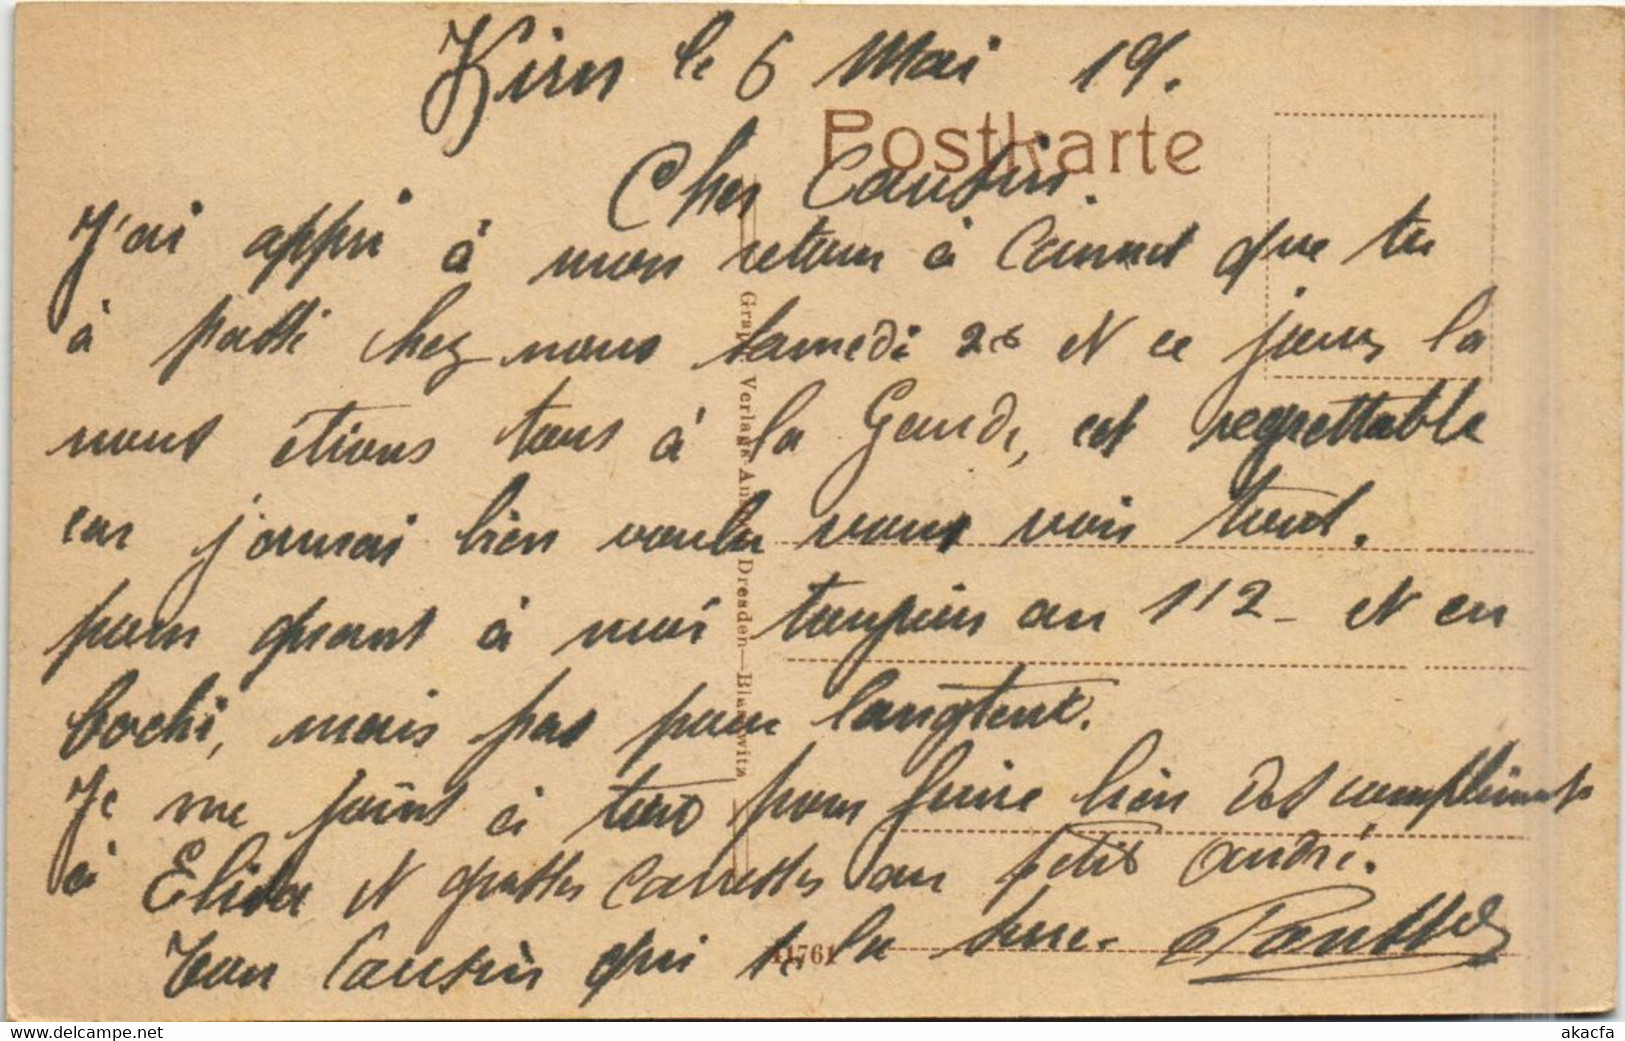 Kirn le 6 Mai 19.
Postkarte
Cher Cousin.
J'ai appri à mon retour à que tu
à passé chez nous samedi 28 et ce jour la
nous étions tous à la, est regrettable
car j'aimai bien voulu vous voir tous.
pour quant à moi toujours au 112 - et en
bochi, mais pas pour longtems.
Je me joins à tous pour faire bien des compliments
à Elisa et grosses caresses au petit André.
Ton Cousin qui te la serre.
Graph. Verlags Dresden—Blasewitz
41761
www.delcampe.net
akacfa